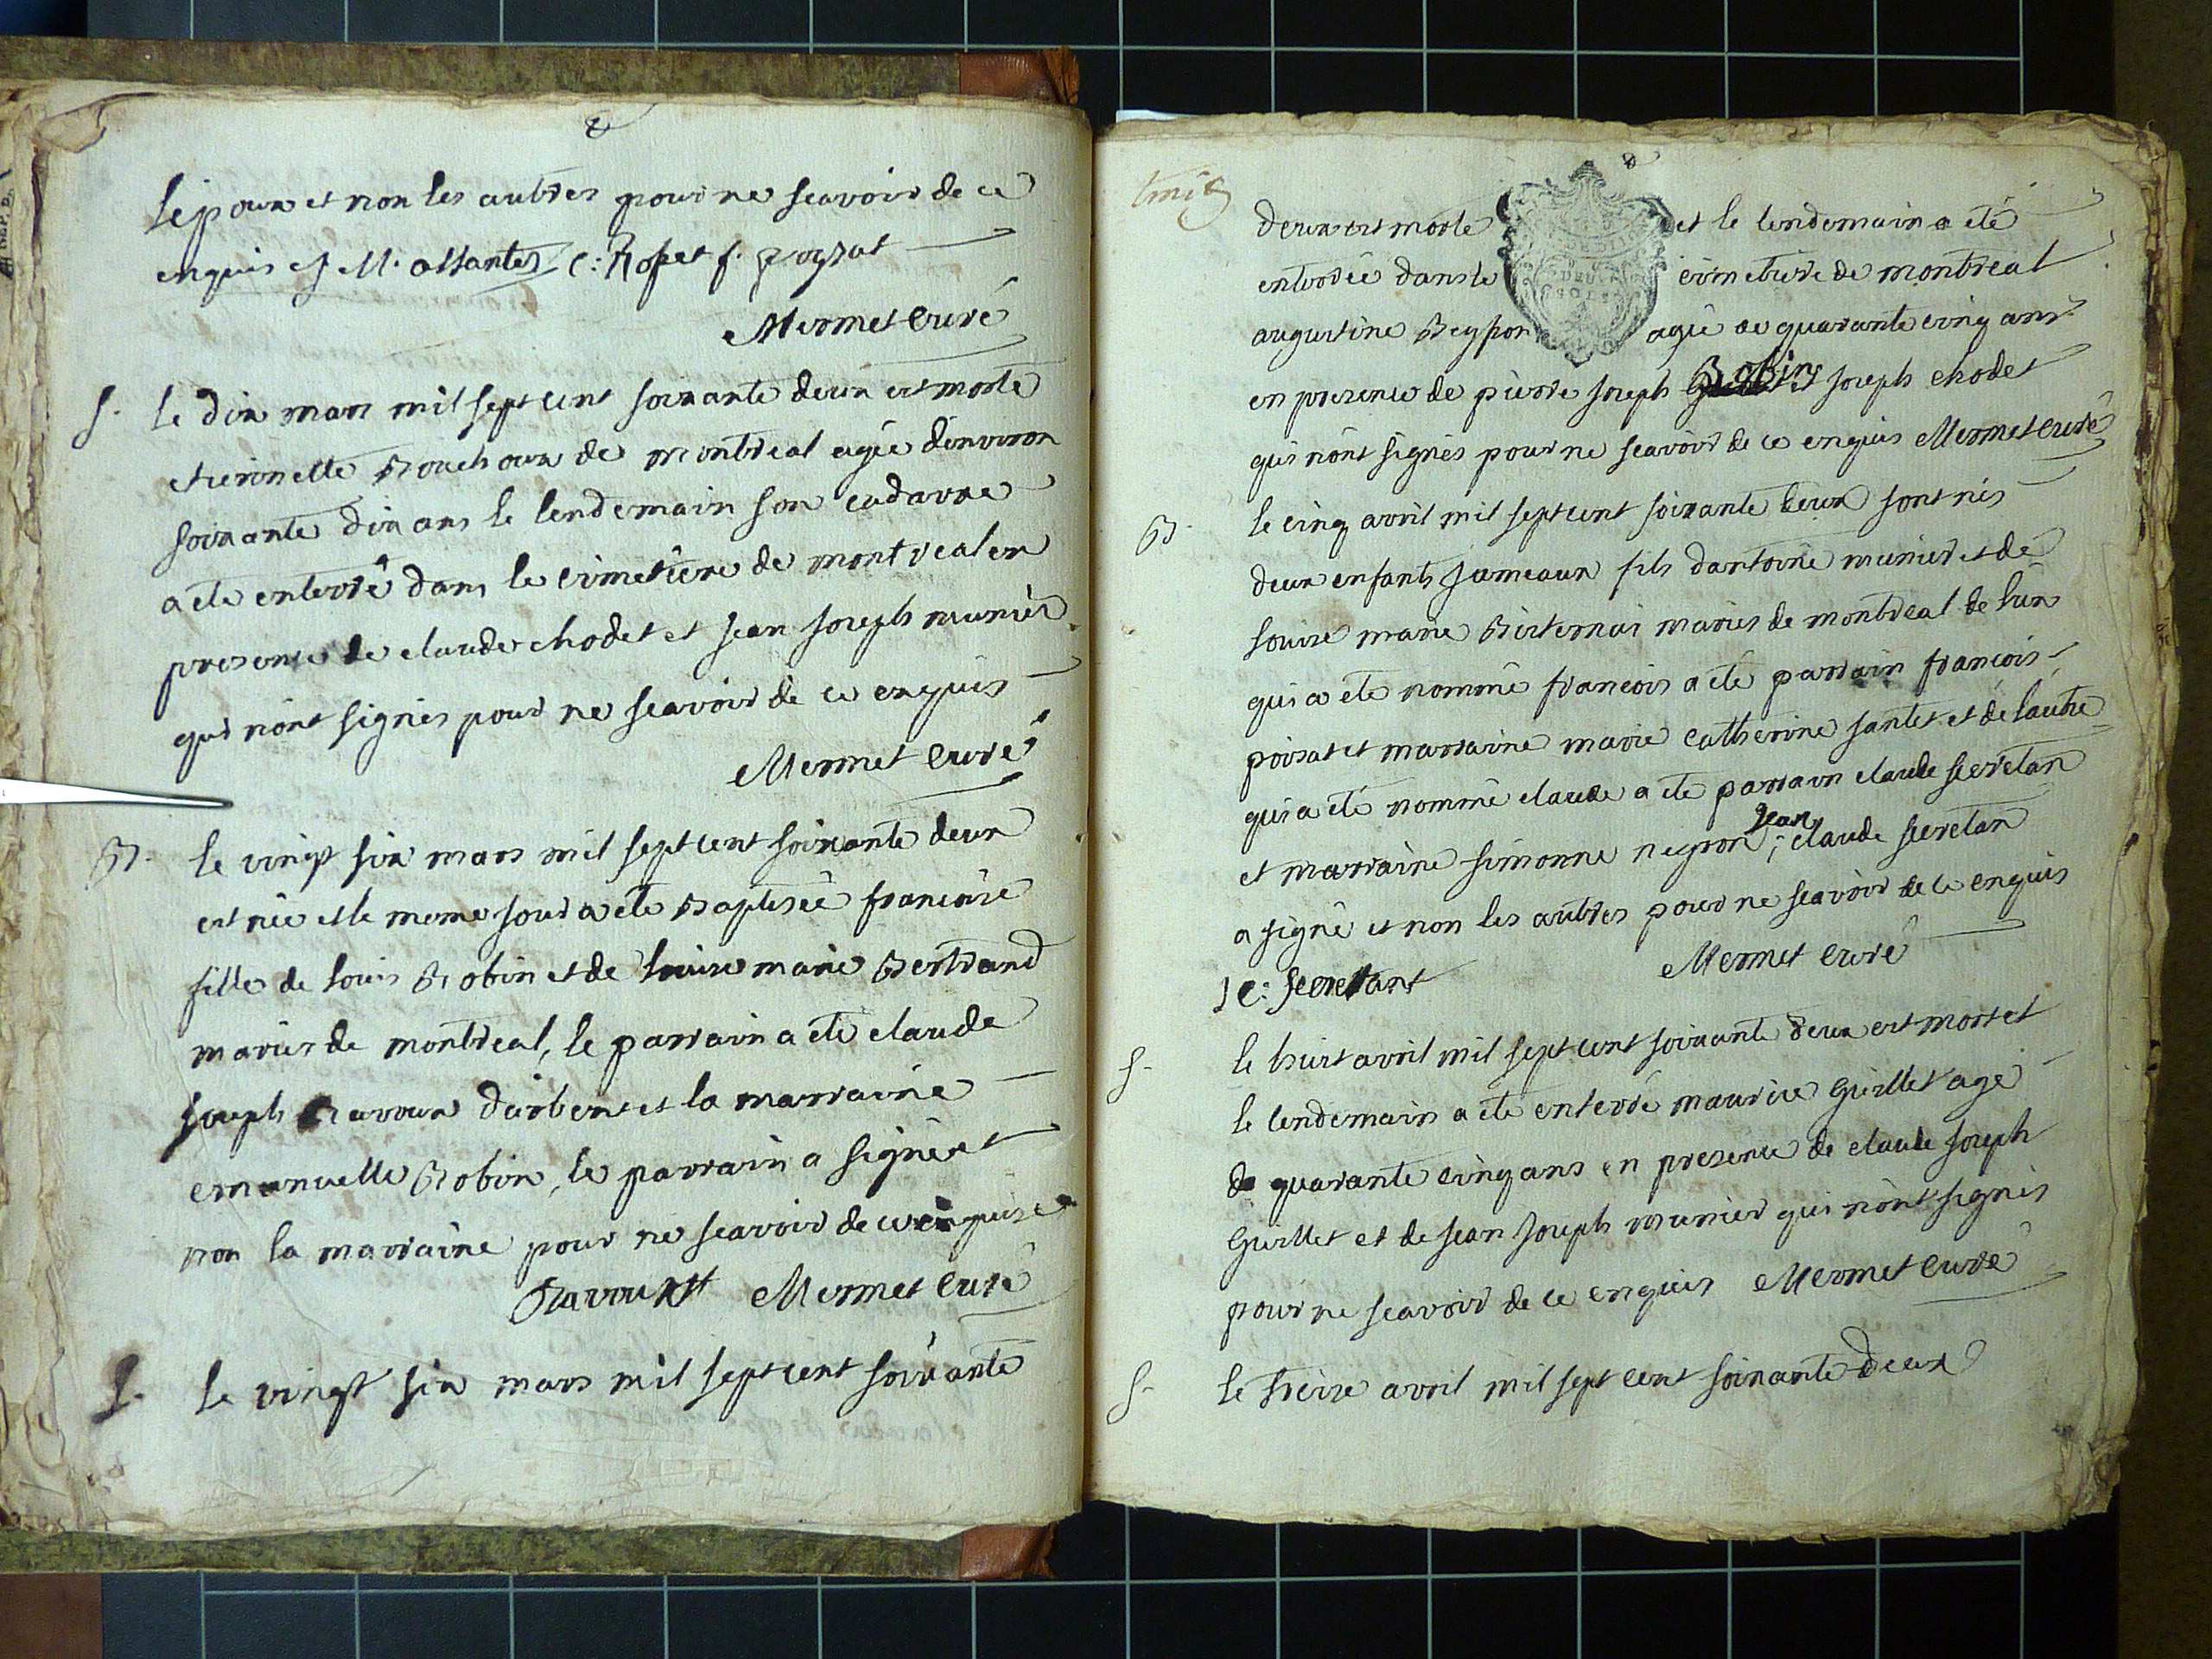 lépoux et non les autres pour ne scavoir de ce
enquis J M. allantez C: Rosset f. pozzat
Mermet Curé
S. le dix mars mil sept cent soixante deux est morte
etiennette Bouchoux de montreal agée denviron
soixante dix ans le lendemain son cadavre
a été enterré dans le cimetiere de montreal en
presence de claude chodet et jean joseph munier
qui n'ont signés pour ne scavoir de ce enquis
Mermet Curé
B. le vingt six mars mil sept cent soixante deux
est née et le meme jour a été Baptisée francoise
fille de louis Robin et de louise marie Bertrand
mariés de montreal, le parrain a été claude
joseph Ravoux d'arbent et la marraine
emanuelle Robin, le parrain a signé et
non la marraine pour ne scavoir de ce enquise
Ravoux Mermet Curé
S. le vingt six mars mil sept cent soixante
deux est morte et le lendemain a été
enterrée dans le cimetiere de montreal
augustine Beysson agée de quarante cinq ans
en presence de pierre joseph Robin joseph chodet
qui n'ont signés pour ne scavoir de ce enquis Mermet Curé
B. le cinq avril mil sept cent soixante deux sont nés
deux enfants jumeaux fils d'antoine munier et de
louise marie mariés de montreal de l'un
qui a été nommé francois a été parrain francois
poisat et marraine marie catherine santet et de l'autre
qui a été nommé claude a été parrain claude secretan
et marraine simonne negron; jean claude secretan
a signé et non les autres pour ne scavoir de ce enquis
J C: Secretant Mermet Curé
S. le huit avril mil sept cent soixante deux est mort et
le lendemain a été enterré maurice Guillet agé
de quarante cinq ans en presence de claude joseph
Guillet et de jean joseph munier qui n'ont signés
pour ne scavoir de ce enquis Mermet Curé
S. le treize avril mil sept cent soixante deux